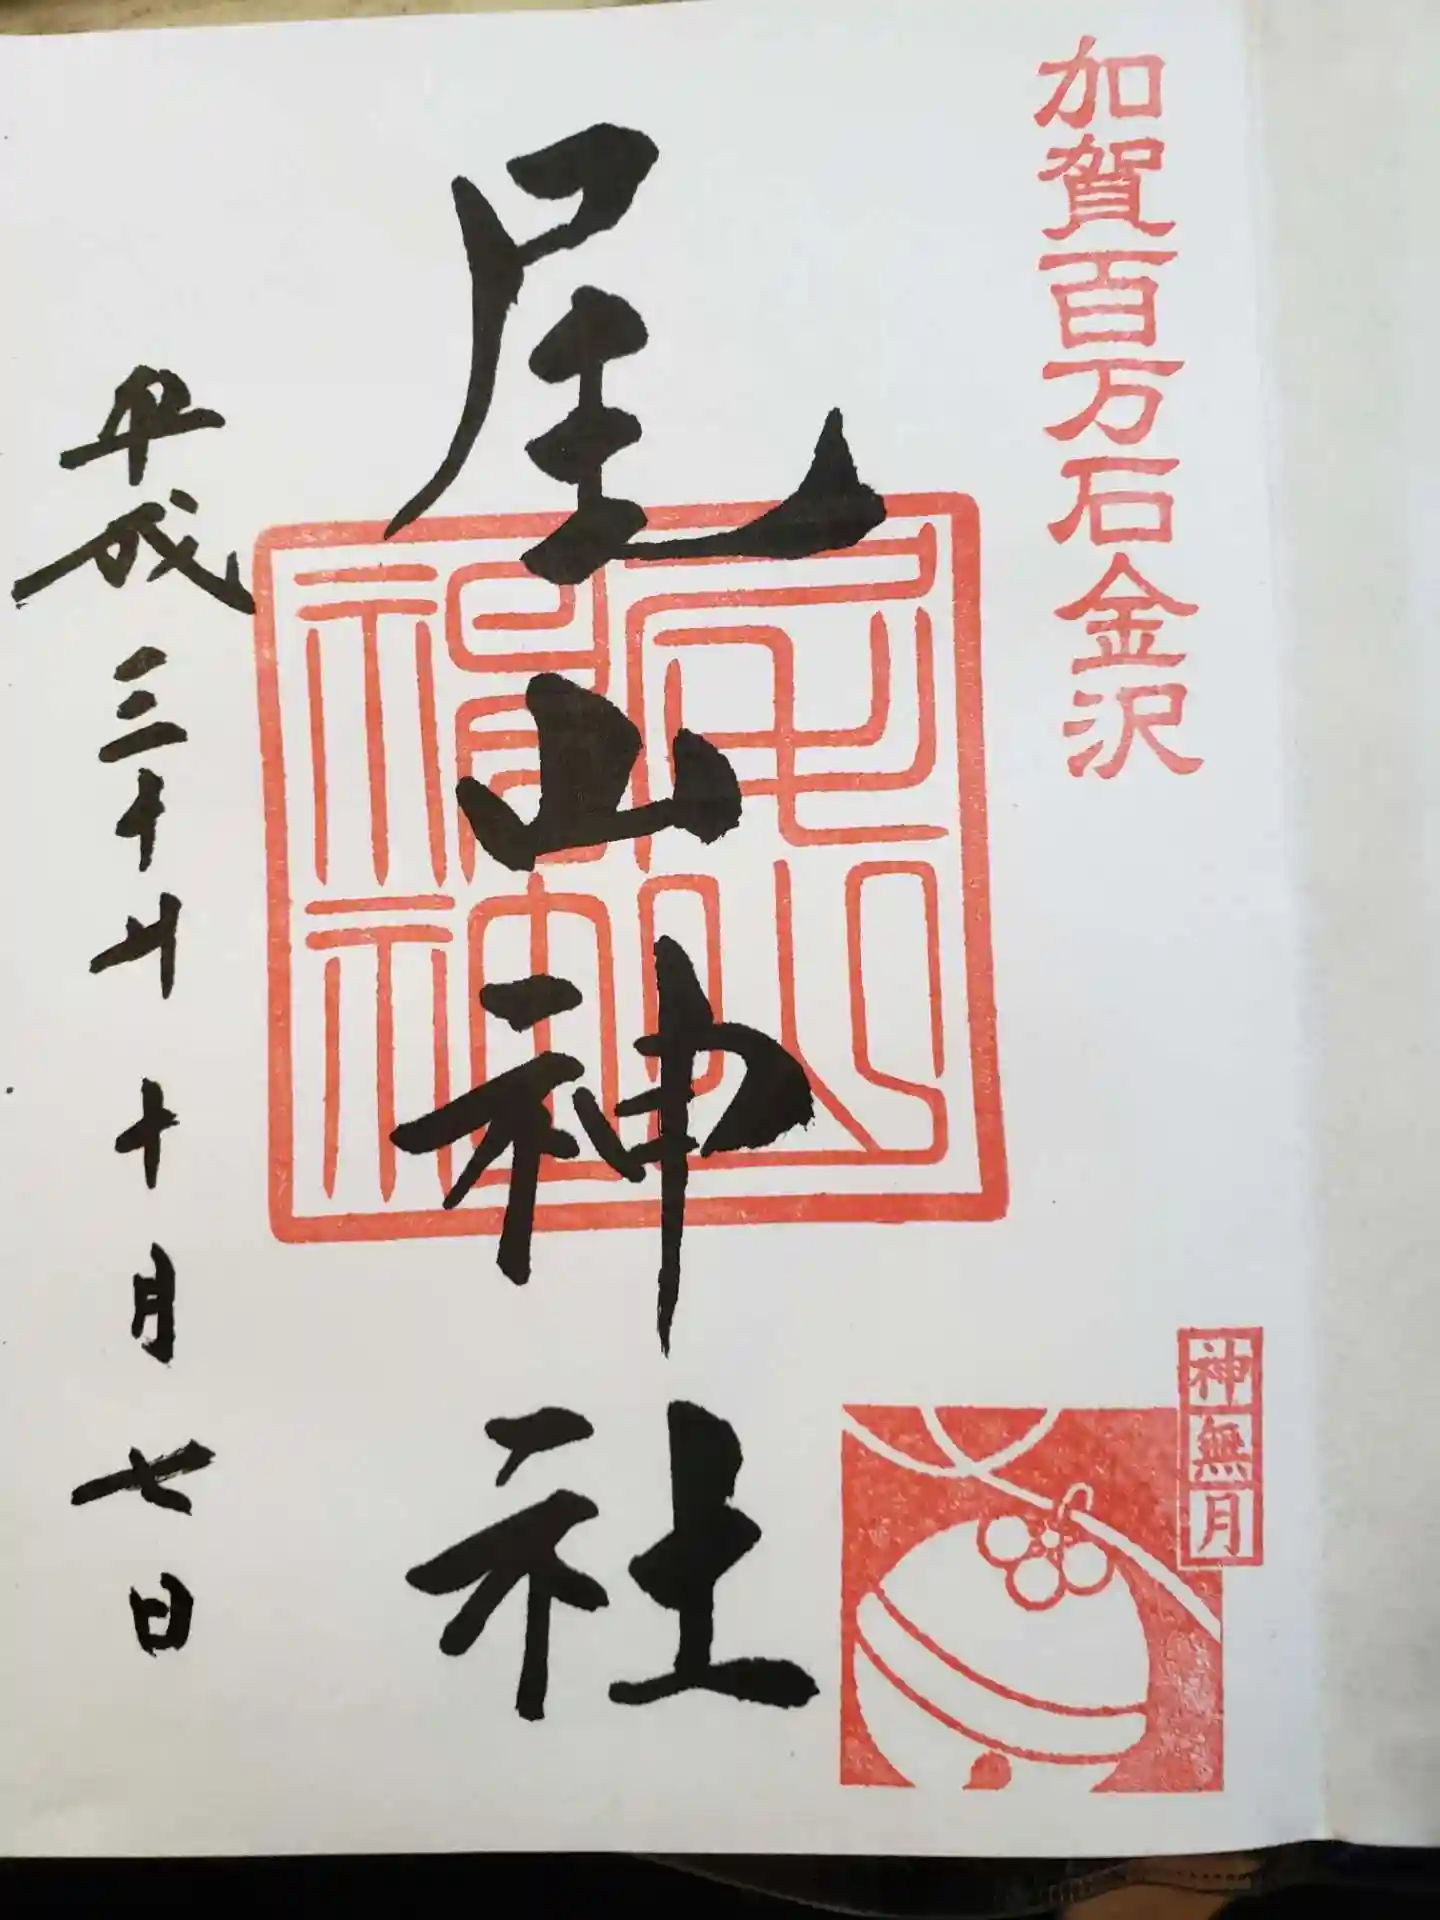 加賀百万石金沢
尾山神社
尾山神社
神無月
平成三十年十月七日